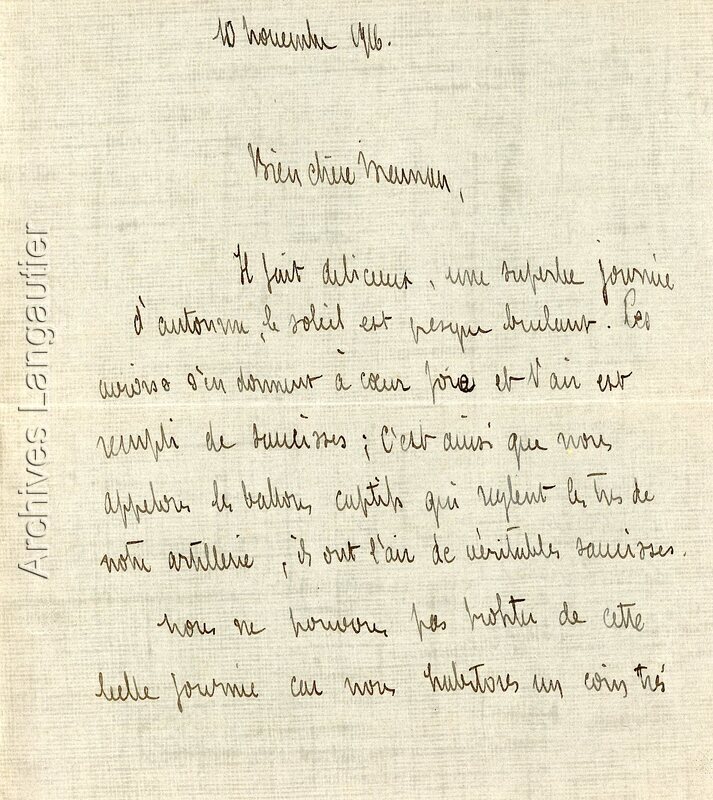 10 novembre 1916.
Bien chère Maman,
Il fait delicieux, une superbe journée
d'automne, le soleil est presque brulant. Les
avions s'en donnent à cœur joie et l'air est
rempli de saucisses ; C'est ainsi que nous
appelons les ballons captifs qui reglent les tirs de
notre artillerie, ils ont l'air de véritables saucisses.
Nous ne pouvons pas profiter de cette
belle journée car nous habitons un coin très
Archives Langautier